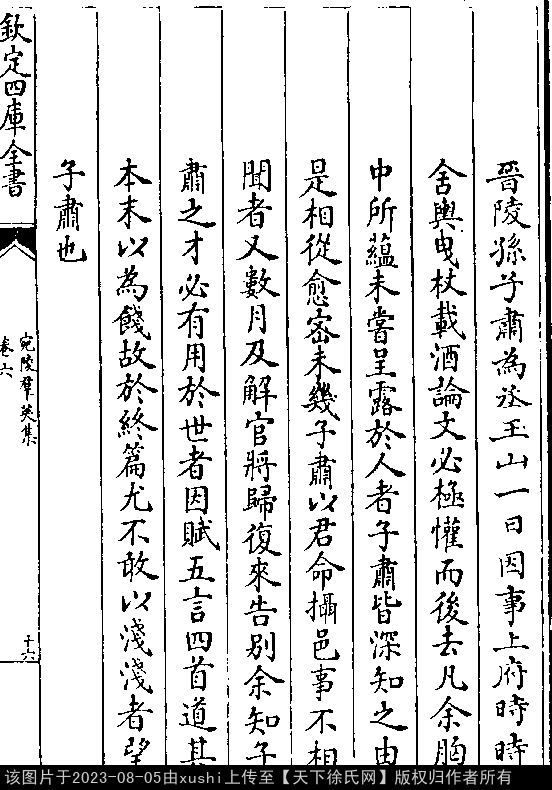 晉陵孫子肅為丞玉山一日因事上府時時
舍輿曳杖載酒論文必極懽而後去凡余胸
中所蘊未嘗呈露於人者子肅皆深知之由
是相從愈宻未幾子肅以君命攝邑事不相
聞者又數月及解官將歸復來告别余知子
肅之才必有用於世者因賦五言四首道其
本末以為餞故於終篇尤不敢以淺淺者望
子肅也
欽定四庫全書
宛陵羣英集
卷六
十六
该图片于2023-08-05由xushi上传至【天下徐氏网】版权归作者所有